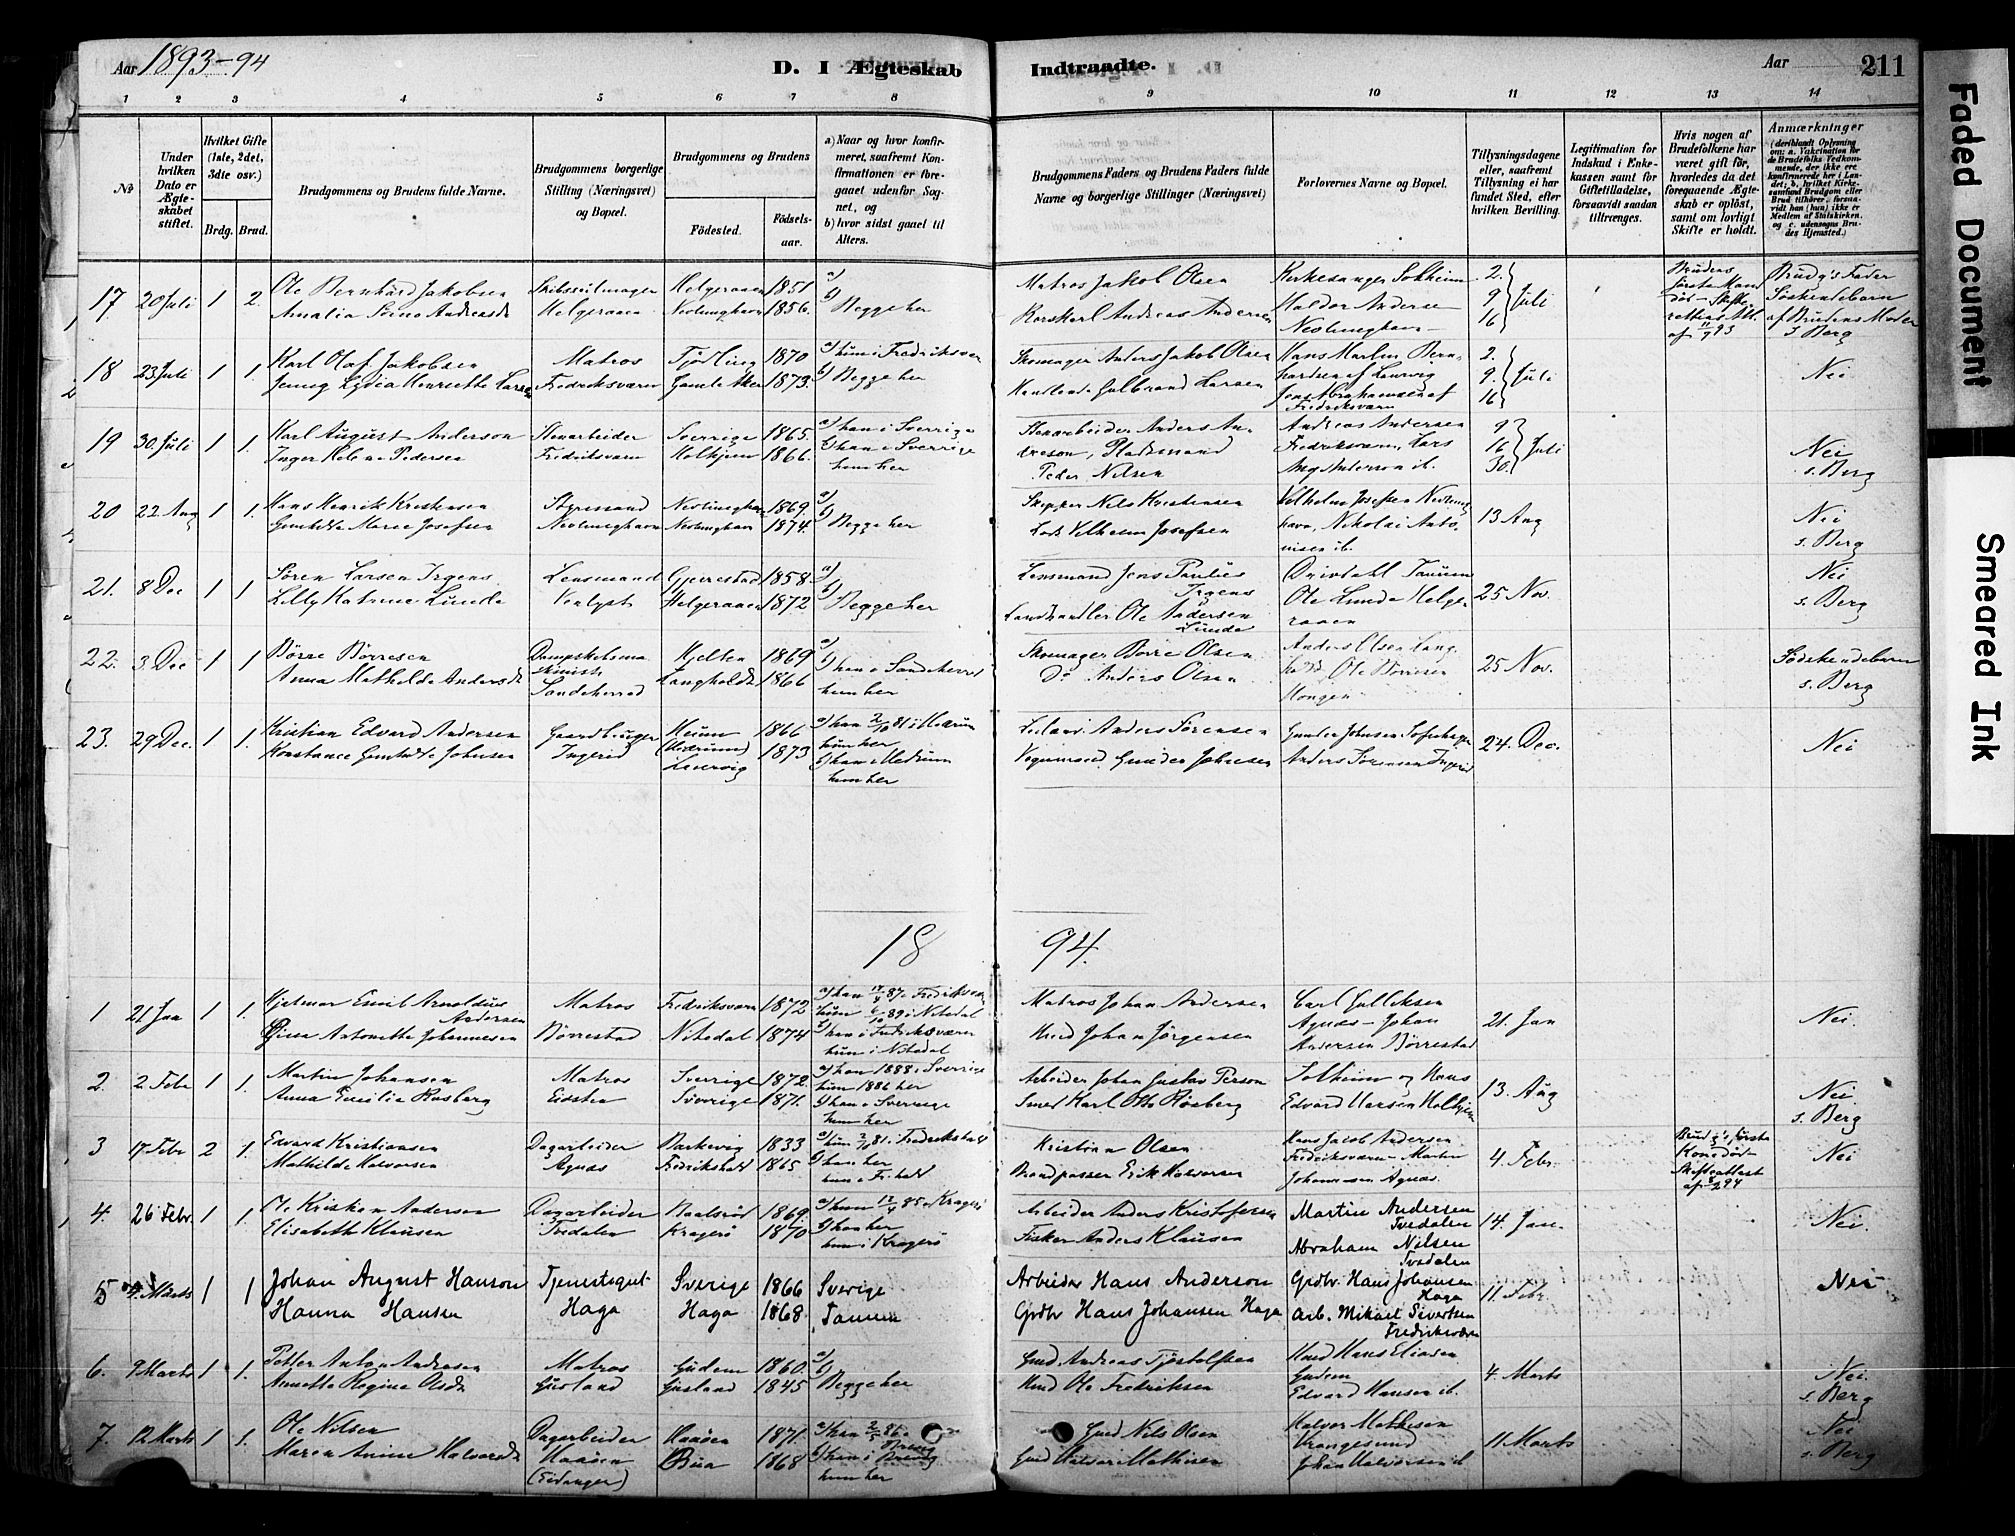 Aar 1893-94
D. I Ægteskab
Indtraadte.
Aar
211
1 2 3 4 5 6 7 8
9 10 11 12 13 14
№
Under hvilken Dato er Ægteskabet stiftet.
Hvilket Gifte (1ste, 2det, 3die osv.)
Brdg. Brud.
Brudgommens og Brudens fulde Navne.
Brudgommens borgerlige Stilling (Næringsvei) og Bopæl.
Brudgommens og Brudens
Fødested.
Fødselsaar.
a) Naar og hvor konfirmeret, saafremt Konfirmationen er foregaaet udenfor Sognet, og
b) hvor sidst gaaet til Alters.
Brudgommens Faders og Brudens Faders fulde Navne og borgerlige Stillinger (Næringsvei)
Forlovernes Navne og Bopæl.
Tillysningsdagene eller, saafremt Tillysning ei har fundet Sted, efter hvilken Bevilling.
Legitimation for Indskud i Enkekassen samt for Giftetilladelse, forsaavidt saadan tiltrænges.
Hvis nogen af Brudefolkene har været gift før, hvorledes da det foregaaende Ægteskab er opløst, samt om lovligt Skifte er holdt.
Anmærkninger
17 20 Juli 1 2. Ole Bernhard Jakobsen Skibsseilmager Helgeraaen 1851 a)
Helgeraaen Nevlunghavn 1856. b) Begge her
Matros Jakob Olsen Kirkesanger Solheim 2. 9 16 Juli
Andreas Andersen Haldor Andersen Nevlunghavn
Brudens første Mand død - Skifterettens Att. af 11/7 93
Brudg's Fader Søskendebarn af Brudens Moder
s. Berg
18 23 Juli 1 1. Karl Olaf Jakobsen Matros Tjølling 1870 a) hun i Fredriksvern
Jenny Lydia Henriette Larsen Fredriksværn Gamle Aker 1873. b) Begge her
Skomager Anders Jakob Olsen Hans Martin Bernhardsen af Laurvig 2. 9. 16 Juli
Gulbrand Larsen Jens Abrahamsen af Fredriksværn
Nei
19 30 Juli 1 1. Karl August Anderson Stenarbeider Sverrige 1865. a) han i Sverrige
Inger Helene Pedersen Fredriksværn Holhjem 1866. b) han i Sverrige hun her
Stenarbeider Anders Andreson, Pladsmand Peder Nilsen
Andreas Andersen Fredriksværn, Lars Aug Anderson ib. 9 16 30. Juli
Nei
s. Berg
20 22 Aug 1 1. Hans Henrik Kristensen Styrmand Nevlunghavn 1869. a)
Gunhilda Marie Josefsen Nevlunghavn Nevlunghavn 1874. b) Begge her
Skipper Nils Kristensen Vilhelm Josefsen Nevlunghavn, Nikolai Antonisen ib. 13 Aug
Lods Vilhelm Josefsen
Nei
s. Berg
21. 8 Dec 1 1 Søren Larsen Irgens Lensmand Gjerrestad 1858. a)
Lilly Katrine Lunde Venlyst Helgeraaen 1872 b) Begge her
Lensmand Jens Paulus Irgens
Landhandler Ole Andersen Lunde Ole Lunde Helgeraaen 25 Nov.
Nei
s. Berg
22. 3 Dec 1 1 Børre Børresen Kjelten 1869 a)
Anna Mathilde Andersdt Sandeherred Langholdt 1866 b) han i Sandeherred hun her
Skomager Børre Olsen Anders Olsen
Do Anders Olsen Ole Børresen Hongen 25 Nov.
Sødskendebarn
s. Berg
23. 29 Dec. 1 1. Kristian Edvard Andersen Gaardbruger Heum 1866 a) han 2/10 81 i Hedrum hun her
Konstance Gunhilde Johnsen Ingerid (Hedrum) Laurvig 1873 b) han i Hedrum hun her
Anders Sørensen Gunder Johnsen 24. Dec.
Gunder Johnsen Anders Sørensen Ingerid
Nei
18 94.
1 21 Jan 1 1. Hjalmar Emil Arnoldius Andersen Matros Fredriksværn 1872 a) han 17/4 87 i Fredriksværn hun 6/10 89 i Nitedal
Gina Antonette Johannesen Børrestad Nitedal 1874 b) han i Fredriksværn hun i Nitedal
Matros Johan Andersen Carl Gulliksen Agnæs - Johan Andersen Børrestad 21. Jan
Johan Jørgensen
Nei.
2. 2 Febr 1 1. Martin Johansen Matros Sverrige 1872. a) han 1888 i Sverrige hun 1886 her
Anna Emilie Rosberg Eidsten Sverrige 1871. b) han i Sverrige hun her
Arbeider Johan Gustav Person Solheim og Hans Edvard Hansen Holhjem 13. Aug
Smed Karl Otto Rosberg
Nei
s. Berg
3 17 Febr 2 1. Edvard Kristiansen Dagarbeider Barkevig 1833 a) hun 2/10 81 i Fredrikshald
Mathilde Halvorsen Agnæs Fredrikshald 1865 b) han her hun i Fr.hald
Kristian Olsen Hans Jacob Andersen Fredriksværn - Martin Johannesen Agnæs. 4 Febr.
Brandpasser Erik Halvorsen
Brudg's første Kone død - Skifteattest af 3/2 94
Nei
4. 26 Febr. 1 1. Ole Kristian Andersen Dagarbeider 1869. a) hun 12/4 85 i Kragerø
Elisabeth Klausen Tvedalen Kragerø 1870 b) han her hun i Kragerø
Arbeider Anders Kristofersen Martin Andersen Tvedalen 14. Jan.
Fisker Anders Klausen Abraham Nilsen Tvedalen
Nei.
5 4 Marts 1 1 Johan August Hanson Tjenestegut Sverige 1866 Sverige
Hanna Hansen Haga Haga 1868. Tanum
Arbeider Hans Anderson Grdbr. Hans Johansen Haga 11 Febr.
Grdbr Hans Johansen Haga Arb. Mikael Sivertsen Fredriksværn
Nei
6. 9 Marts 1 1. Petter Anton Andresen Matros Gudem 1860. a)
Annette Regine Olsdt Gusland Gusland 1845 b) Begge her
Gmd Andreas Hans Eliasen Gudem 4. Marts
Ole Fredriksen Edvard Hansen ib.
Nei.
s. Berg
7. 12 Marts 1 1. Ole Nilsen Dagarbeider Haaøen 1871. a) han 2/5 86 i Brevig
Maren Amine Halvorsdt Haaøen (Eidanger) Bua 1868 b) han i Brevig hun her
Gmd Nils Olsen Halvor Mathisen Vrangesund 11 Marts
Gmd Halvor Mathisen Johan Halvorsen ib
Nei
s. Berg
Faded Document
Smeared Ink